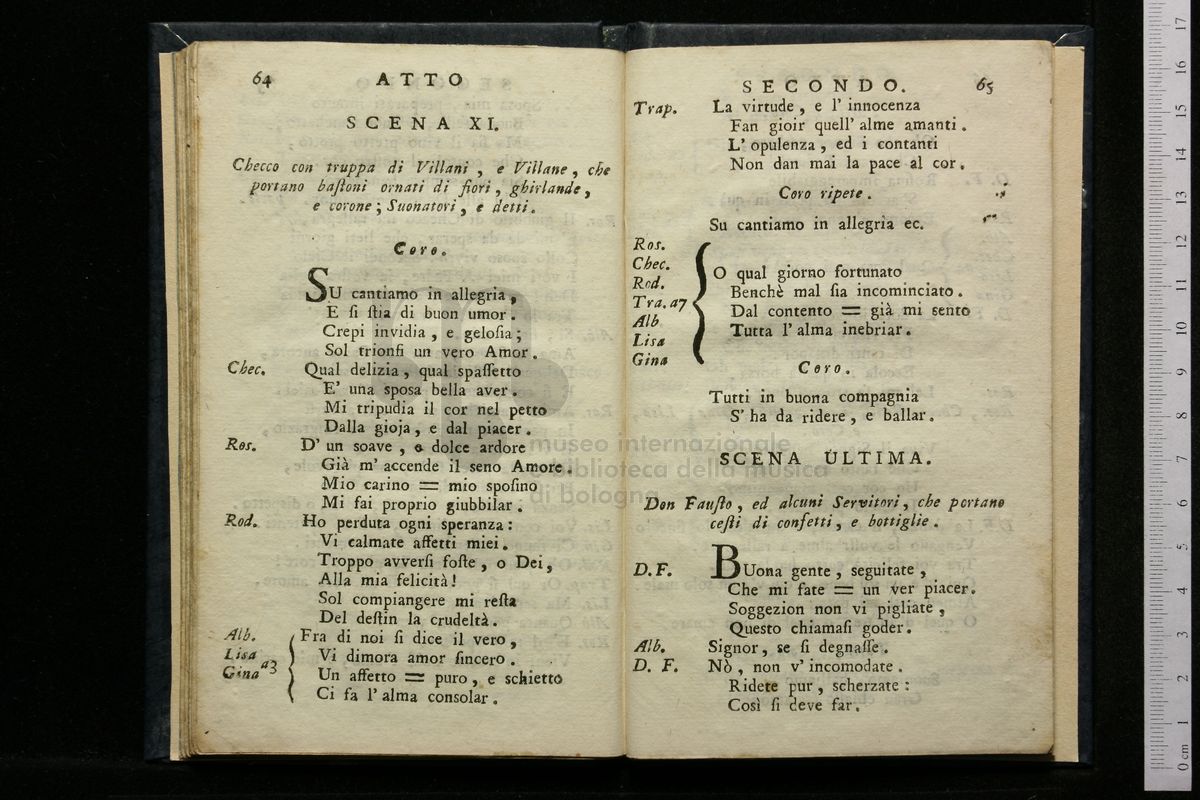 64 ATTO
SCENA XI.
Checco con truppa di Villani, e Villane, che
portano baſtoni ornati di fiori, ghirlande,
e corone; Suonatori, e detti.
Coro.
SU cantiamo in allegria,
E ſi ſtia di buon umor.
Crepi invidia, e geloſia;
Sol trionfi un vero Amor.
Chec. Qual delizia, qual spaſſetto
E' una sposa bella aver.
Mi tripudia il cor nel petto
Dalla gioja, e dal piacer.
Ros. D' un soave, e dolce ardore
Già m' accende il seno Amore.
Mio carino = mio spoſino
Mi fai proprio giubbilar.
Rod. Ho perduta ogni speranza:
Vi calmate affetti miei.
Troppo avverſi foſte, o Dei,
Alla mia felicità!
Sol compiangere mi reſta
Del deſtin la crudeltà.
Alb. Fra di noi ſi dice il vero,
Lisa Vi dimora amor ſincero.
Gina a3 Un affetto = puro, e schietto
Ci fa l' alma consolar.
SECONDO. 65
Trap. La virtude, e l' innocenza
Fan gioir quell' alme amanti.
L' opulenza, ed i contanti
Non dan mai la pace al cor.
Coro ripete.
Su cantiamo in allegria ec.
Ros.
Chec. O qual giorno fortunato
Rod. Benchè mal ſia incominciato.
Tra. a7 Dal contento = già mi sento
Alb Tutta l' alma inebriar.
Lisa
Gina
Coro.
Tutti in buona compagnia
S' ha da ridere, e ballar.
SCENA ULTIMA.
Don Fauſto, ed alcuni Servitori, che portano
ceſti di confetti, e bottiglie.
D. F. BUona gente, seguitate,
Che mi fate = un ver piacer.
Soggezion non vi pigliate,
Questo chiamaſi goder.
Alb. Signor, se ſi degnaſſe.
D. F. Nò, non v' incomodate.
Ridete pur, scherzate:
Così ſi deve far.
museo internazionale
e biblioteca della musica
di bologna
0 cm 1 2 3 4 5 6 7 8 9 10 11 12 13 14 15 16 17